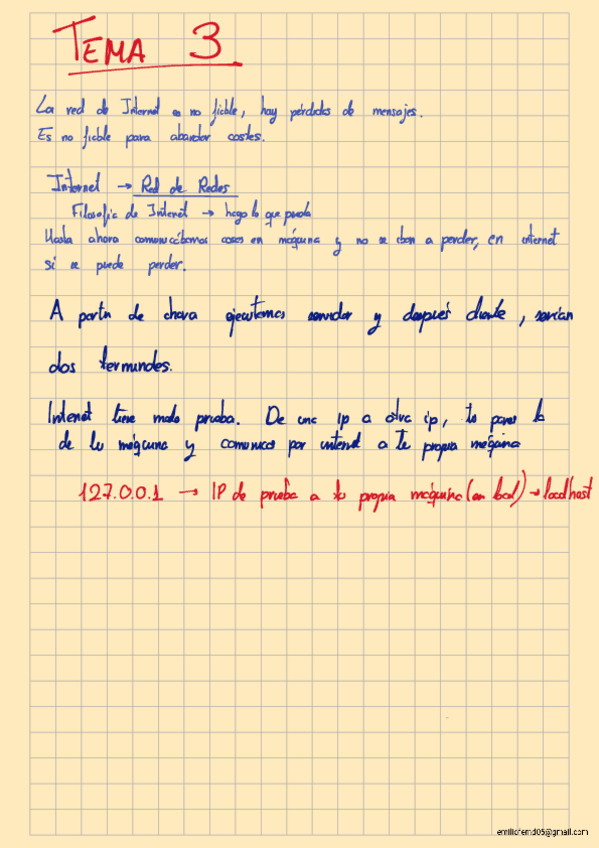 TEMA 3
La red de Internet es no fiable, hay pérdidas de mensajes.
Es no fiable para abaratar costes.
Internet → Red de Redes
Filosofia de Internet → hago lo que pueda
Hasta ahora comunicábamos cosas en máquina y no se iban a perder, en internet
si se puede perder.
A partir de ahora ejecutamos servidor y después cliente, serían
dos terminales.
Internet tiene modo prueba. De una ip a otra ip, tu pones la
de tu máquina y comunicas por internet a tu propia máquina
127.0.0.1 → IP de prueba a tu propia máquina (en local) → localhost
emiliofernd05@gmail.com